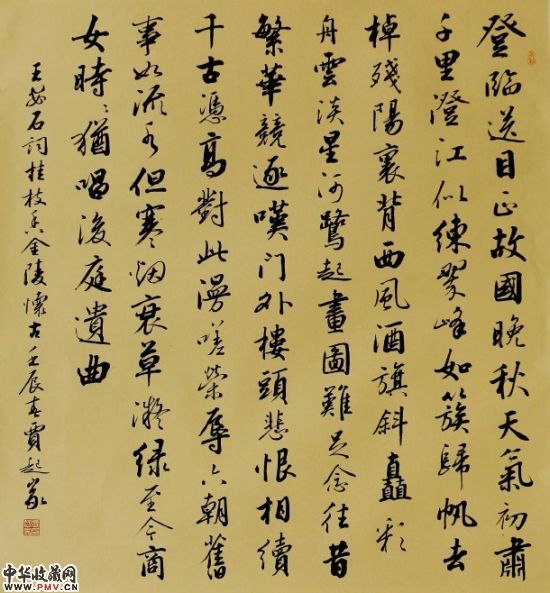 登臨送目正故國晚秋天氣初肅
千里澄江似練翠峰如簇歸帆去
棹殘陽裏背西風酒旗斜矗彩
舟雲淡星河鷺起畫圖難足念往昔
繁華競逐嘆门外樓頭悲恨相續
千古憑高對此漫嗟榮辱六朝舊
事如流水但寒烟衰草凝绿至今商
女時〻猶唱後庭遺曲
王安石詞桂枝香金陵懷古壬辰春賈起家
中华收藏网
WWW.PMV.CN